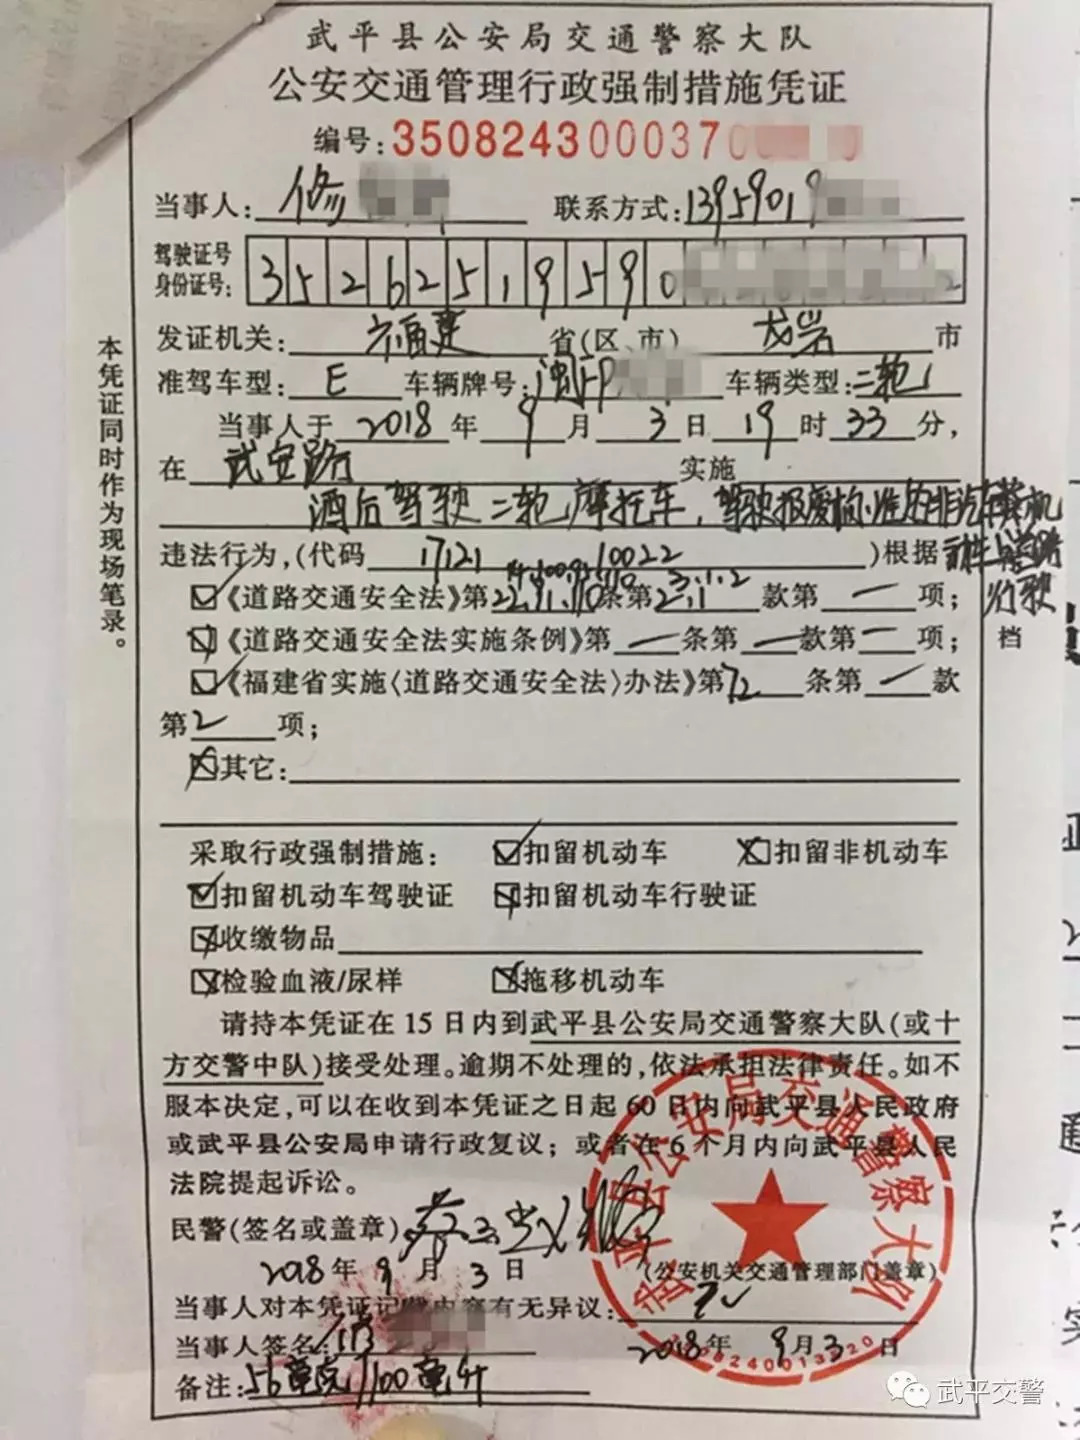 武平县公安局交通警察大队
公安交通管理行政强制措施凭证
编号:350824300037
当事人: 修 联系方式:1395901
驾驶证号
身份证号: 35262519590
发证机关: 福建 省(区、市) 龙岩 市
准驾车型: E 车辆牌号: 闽FP 车辆类型: 二轮
当事人于 2018 年 9 月 3 日 19 时 33 分,
在 武安路 实施
酒后驾驶二轮摩托车,驾驶报废标准的非汽车类机
动车上道路
行驶
违法行为,(代码 17121 10022 )根据
《道路交通安全法》第 条第 款第 一 项;
《道路交通安全法实施条例》第 一 条第 一 款第 一 项;
《福建省实施〈道路交通安全法〉办法》第 72 条第 一 款
第 2 项;
其它:
采取行政强制措施: 扣留机动车 扣留非机动车
扣留机动车驾驶证 扣留机动车行驶证
收缴物品
检验血液/尿样 拖移机动车
请持本凭证在15日内到武平县公安局交通警察大队(或十
方交警中队)接受处理。逾期不处理的,依法承担法律责任。如不
服本决定,可以在收到本凭证之日起60日内向武平县人民政府
或武平县公安局申请行政复议;或者在6个月内向武平县人民
法院提起诉讼。
民警(签名或盖章)
2018 年 9 月 3 日
(公安机关交通管理部门盖章)
当事人对本凭证记载内容有无异议: 无
当事人签名: 修 2018 年 9 月 3 日
备注: 56毫克/100毫升
本凭证同时作为现场笔录。
档
武平县公安局交通警察大队
武平交警